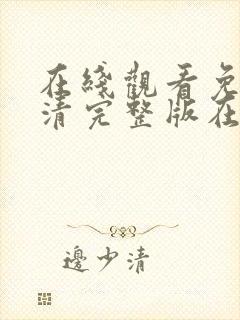 在綫觀看免
清完整版在
邊少清